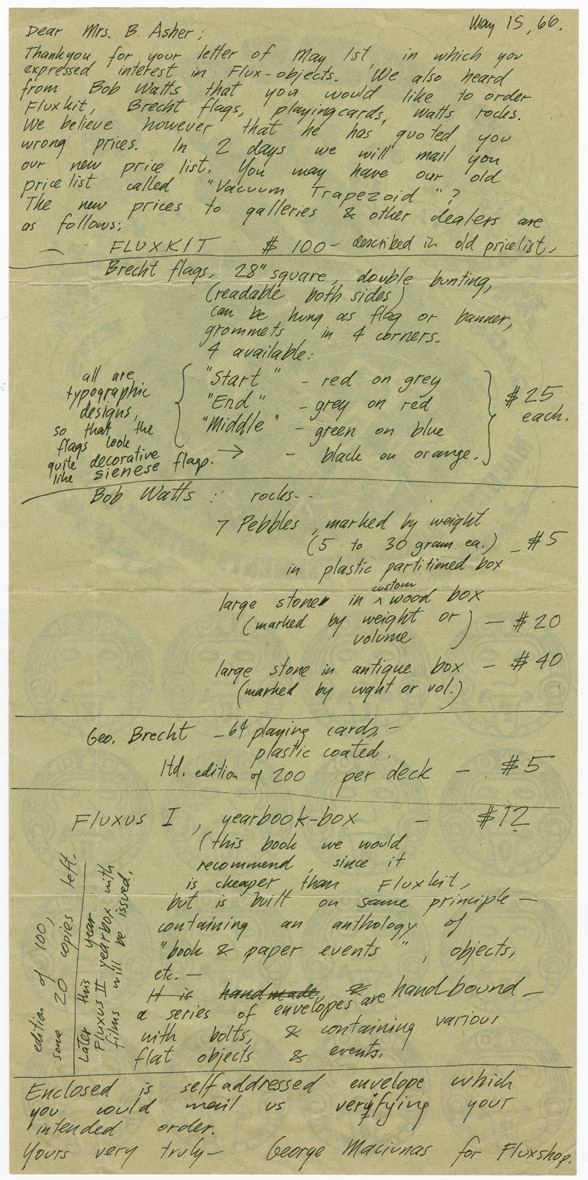 May 15, 66.
Dear Mrs. B. Asher;
Thankyou for your letter of May 1st, in which you
expressed interest in Flux-objects. We also heard
from Bob Watts that you would like to order
Fluxkit, Brecht flags, playingcards, Watts rocks.
We believe however that he has quoted you
wrong prices. In 2 days we will mail you
our new price list. You may have our old
price list called "Vacuum Trapezoid"?
The new prices to galleries & other dealers are
as follows:
FLUXKIT $ 100- described in old pricelist,
Brecht flags, 28" square, double bunting,
(readable both sides)
can be hung as flag or banner,
grommets in 4 corners.
4 available:
"Start" - red on grey
"End" - grey on red
"Middle" - green on blue
→ - black on orange.
$25
each.
all are
typographic
designs,
so that the
flags look
quite decorative
like sienese flags.
Bob Watts: rocks--
7 Pebbles, marked by weight
(5 to 30 gram ea.) - $5
in plastic partitioned box
large stone in custom wood box
(marked by weight or
volume) - $20
large stone in antique box - $40
(marked by wght or vol.)
Geo. Brecht - 64 playing cards, -
plastic coated.
ltd. edition of 200 per deck - $5
Fluxus I, yearbook-box - $12
(this book we would
recommend, since it
is cheaper than Fluxkit,
but is built on same principle -
containing an anthology of
"book & paper events", objects,
etc. -
It is handmade, & hand bound -
a series of envelopes are
with bolts, & containing various
flat objects & events.
edition of 100,
some 20 copies left.
Later this year
Fluxus II yearbox with
films will be issued.
Enclosed is self addressed envelope which
you could mail us verifying your
intended order.
Yours very truly- George Maciunas for Fluxshop.